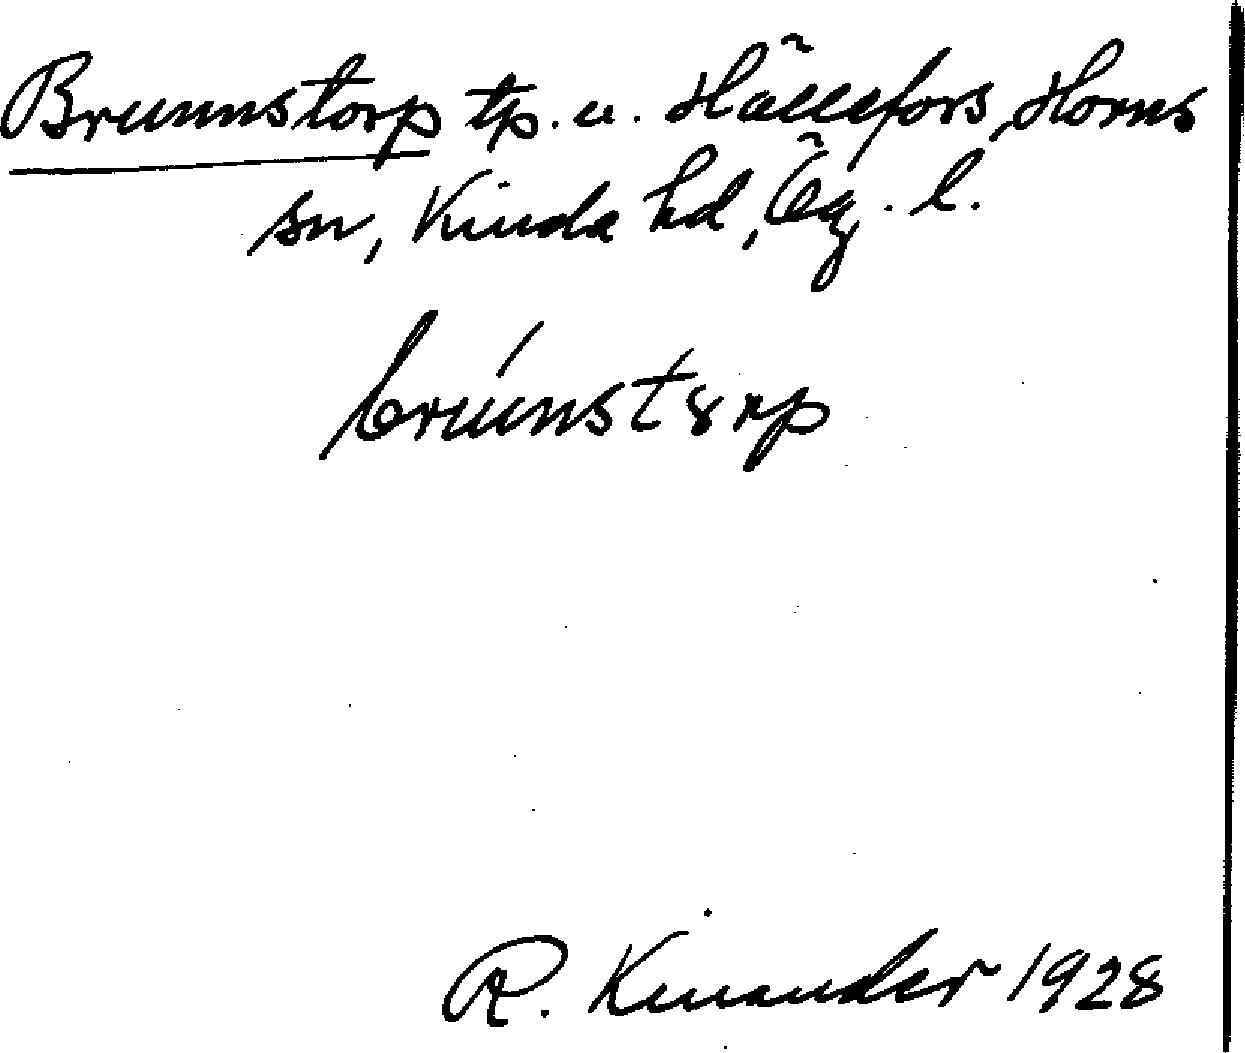 Brunnstorp tp. u. Hällefors, Horns
sn, Kinda hd, Ög. l.
brúnstɤrp
R. Kinander 1928